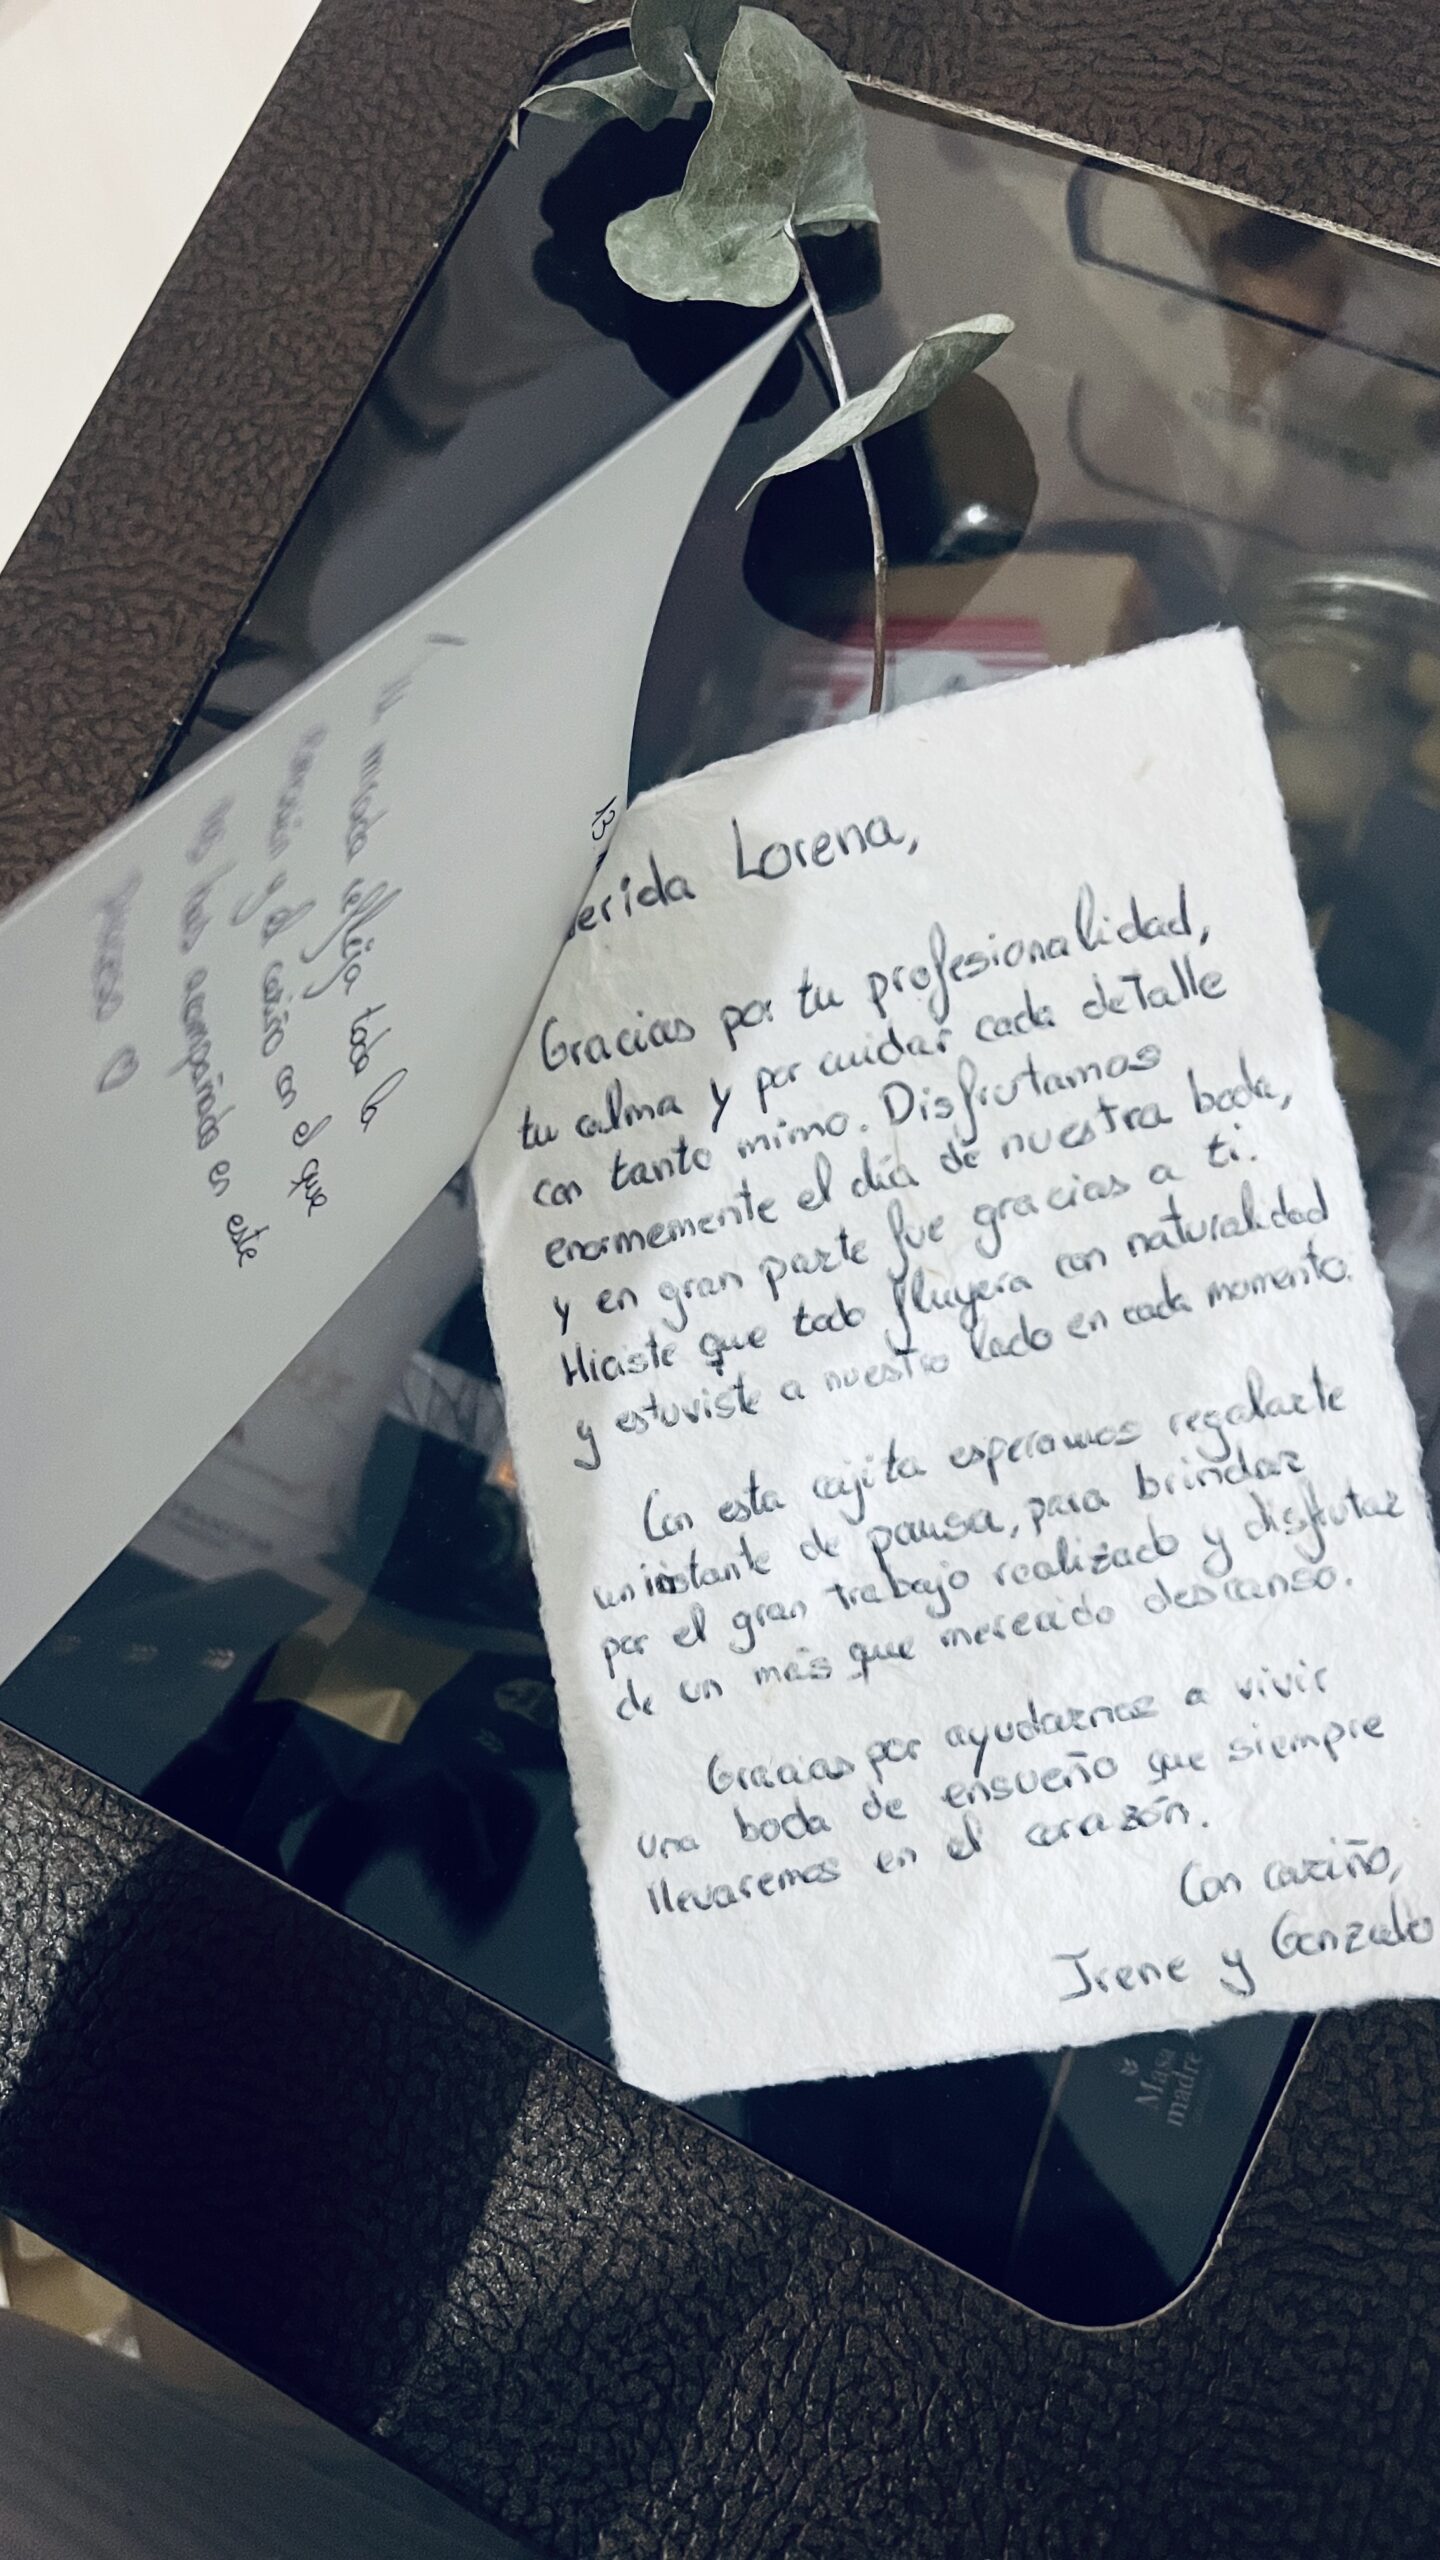 Tu mirada refleja toda la
emoción y el cariño con el que
nos has acompañado en este
proceso ♡
13.
erida Lorena,
Gracias por tu profesionalidad,
tu calma y por cuidar cada detalle
con tanto mimo. Disfrutamos
enormemente el día de nuestra boda,
y en gran parte fue gracias a ti.
Hiciste que todo fluyera con naturalidad
y estuviste a nuestro lado en cada momento.
Con esta cajita esperamos regalarte
un instante de pausa, para brindar
por el gran trabajo realizado y disfrutar
de un más que merecido descanso.
Gracias por ayudarnos a vivir
una boda de ensueño que siempre
llevaremos en el corazón.
Con cariño,
Irene y Gonzalo
Masa
madre